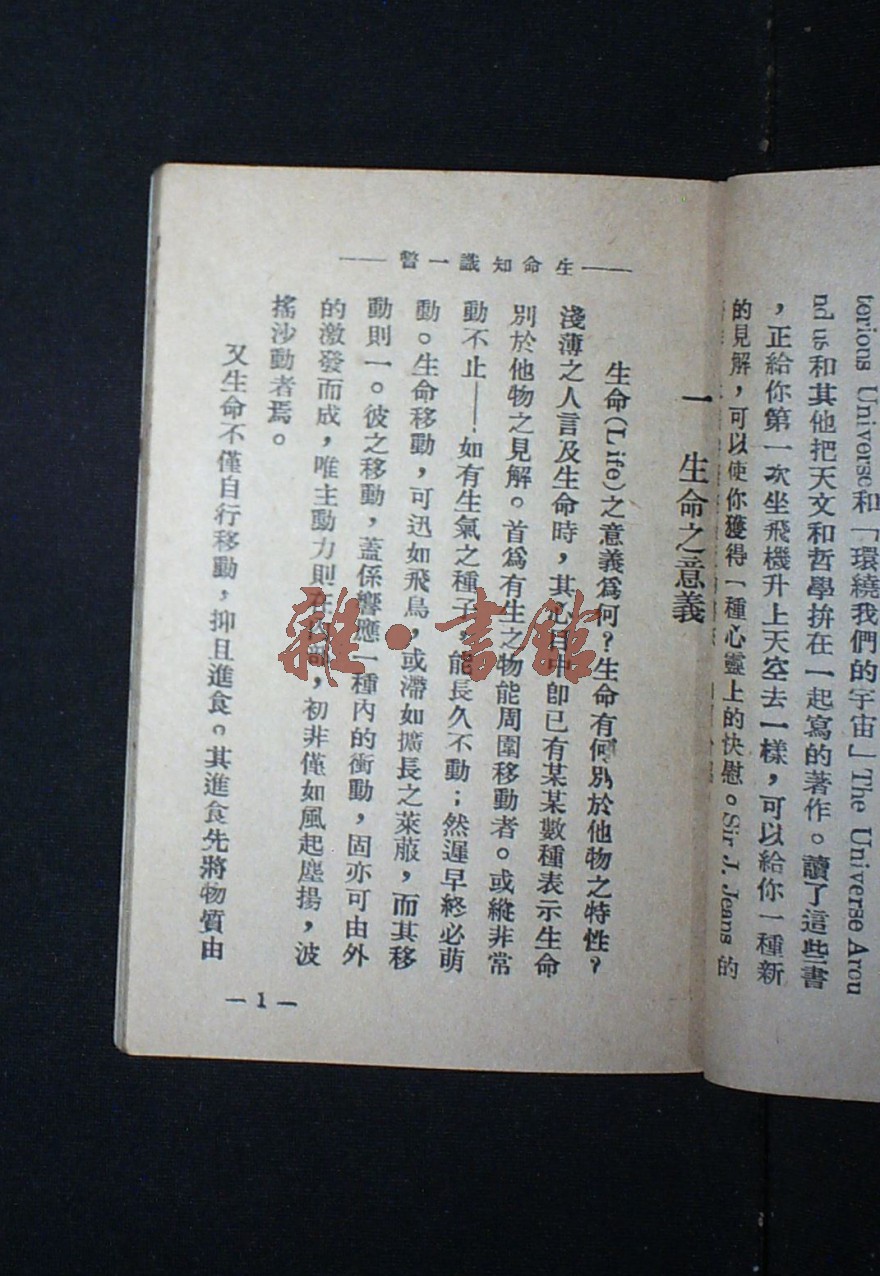 torious Universe和「環繞我們的宇宙」The Universe Arou
nd us和其他把天文和哲學拚在一起寫的著作。讀了這些書
，正給你第一次坐飛機升上天空去一樣，可以給你一種新
的見解，可以使你獲得一種心靈上的快慰。Sir J. Jeans的
生命知識一瞥
一 生命之意義
生命(Life)之意義爲何？生命有何別於他物之特性？
淺薄之人言及生命時，其心目中卽已有某某數種表示生命
別於他物之見解。首爲有生之物能周圍移動者。或縱非常
動不止——如有生氣之種子，能長久不動；然遲早終必萌
動。生命移動，可迅如飛鳥，或滯如擴長之萊菔，而其移
動則一。彼之移動，蓋係響應一種內的衝動，固亦可由外
的激發而成，唯主動力則在內部，初非僅如風起塵揚，波
搖沙動者焉。
又生命不僅自行移動，抑且進食。其進食先將物質由
—1—
雜·書館